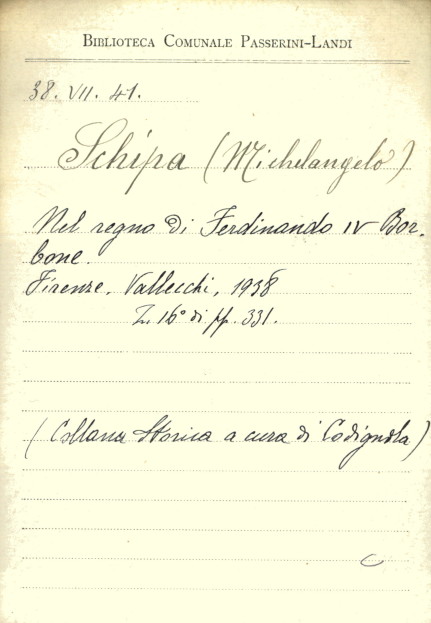 BIBLIOTECA COMUNALE PASSERINI-LANDI
38. VII. 41.
Schipa (Michelangelo)
Nel regno di Ferdinando IV Bor-
bone.
Firenze. Vallecchi, 1938
In 16° di pp. 331.
(Collana Storica a cura di Codignola)